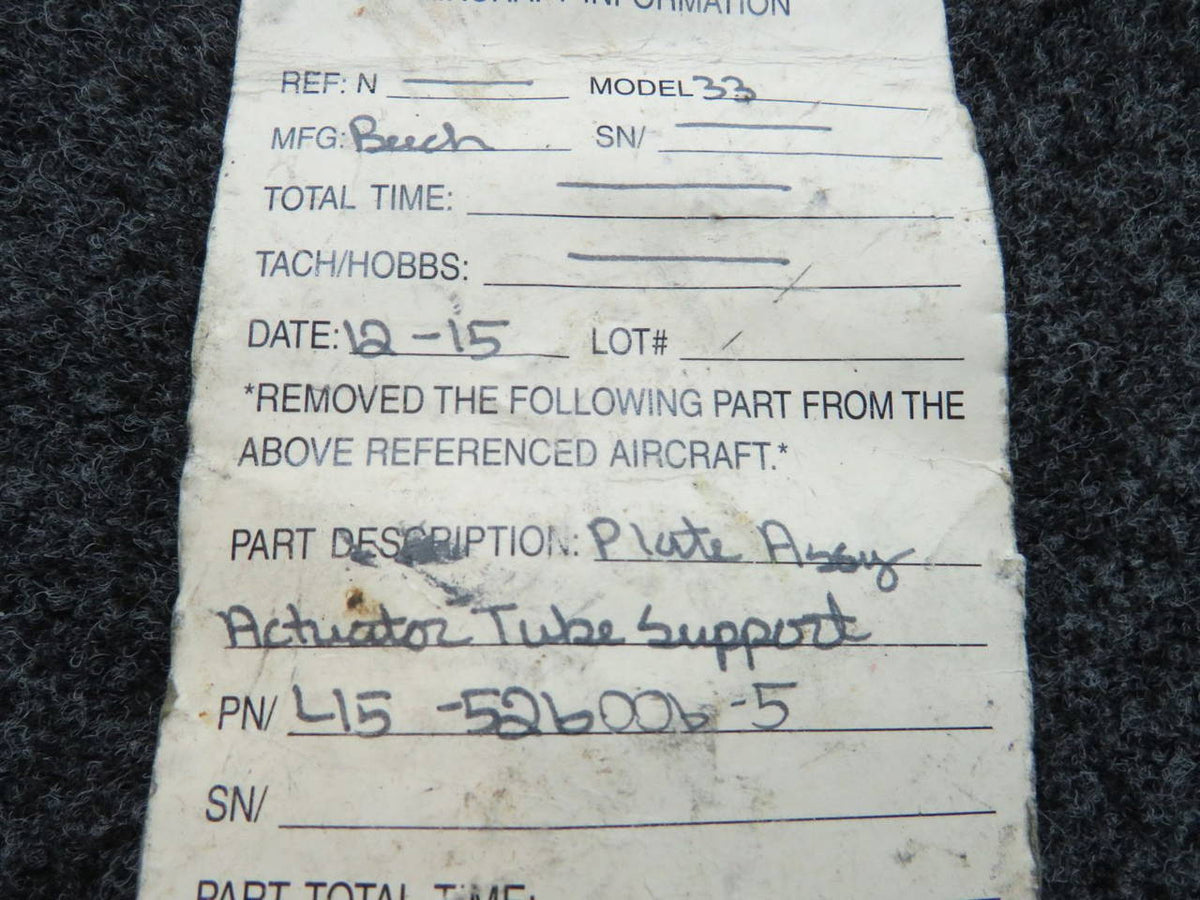 INFORMATION
REF: N MODEL 33
MFG: Beech SN/
TOTAL TIME:
TACH/HOBBS:
DATE: 12-15 LOT#
*REMOVED THE FOLLOWING PART FROM THE
ABOVE REFERENCED AIRCRAFT.*
PART DESCRIPTION: Plate Assy
Actuator Tube Support
PN/ L15 -526006-5
SN/
PART TOTAL TIME: